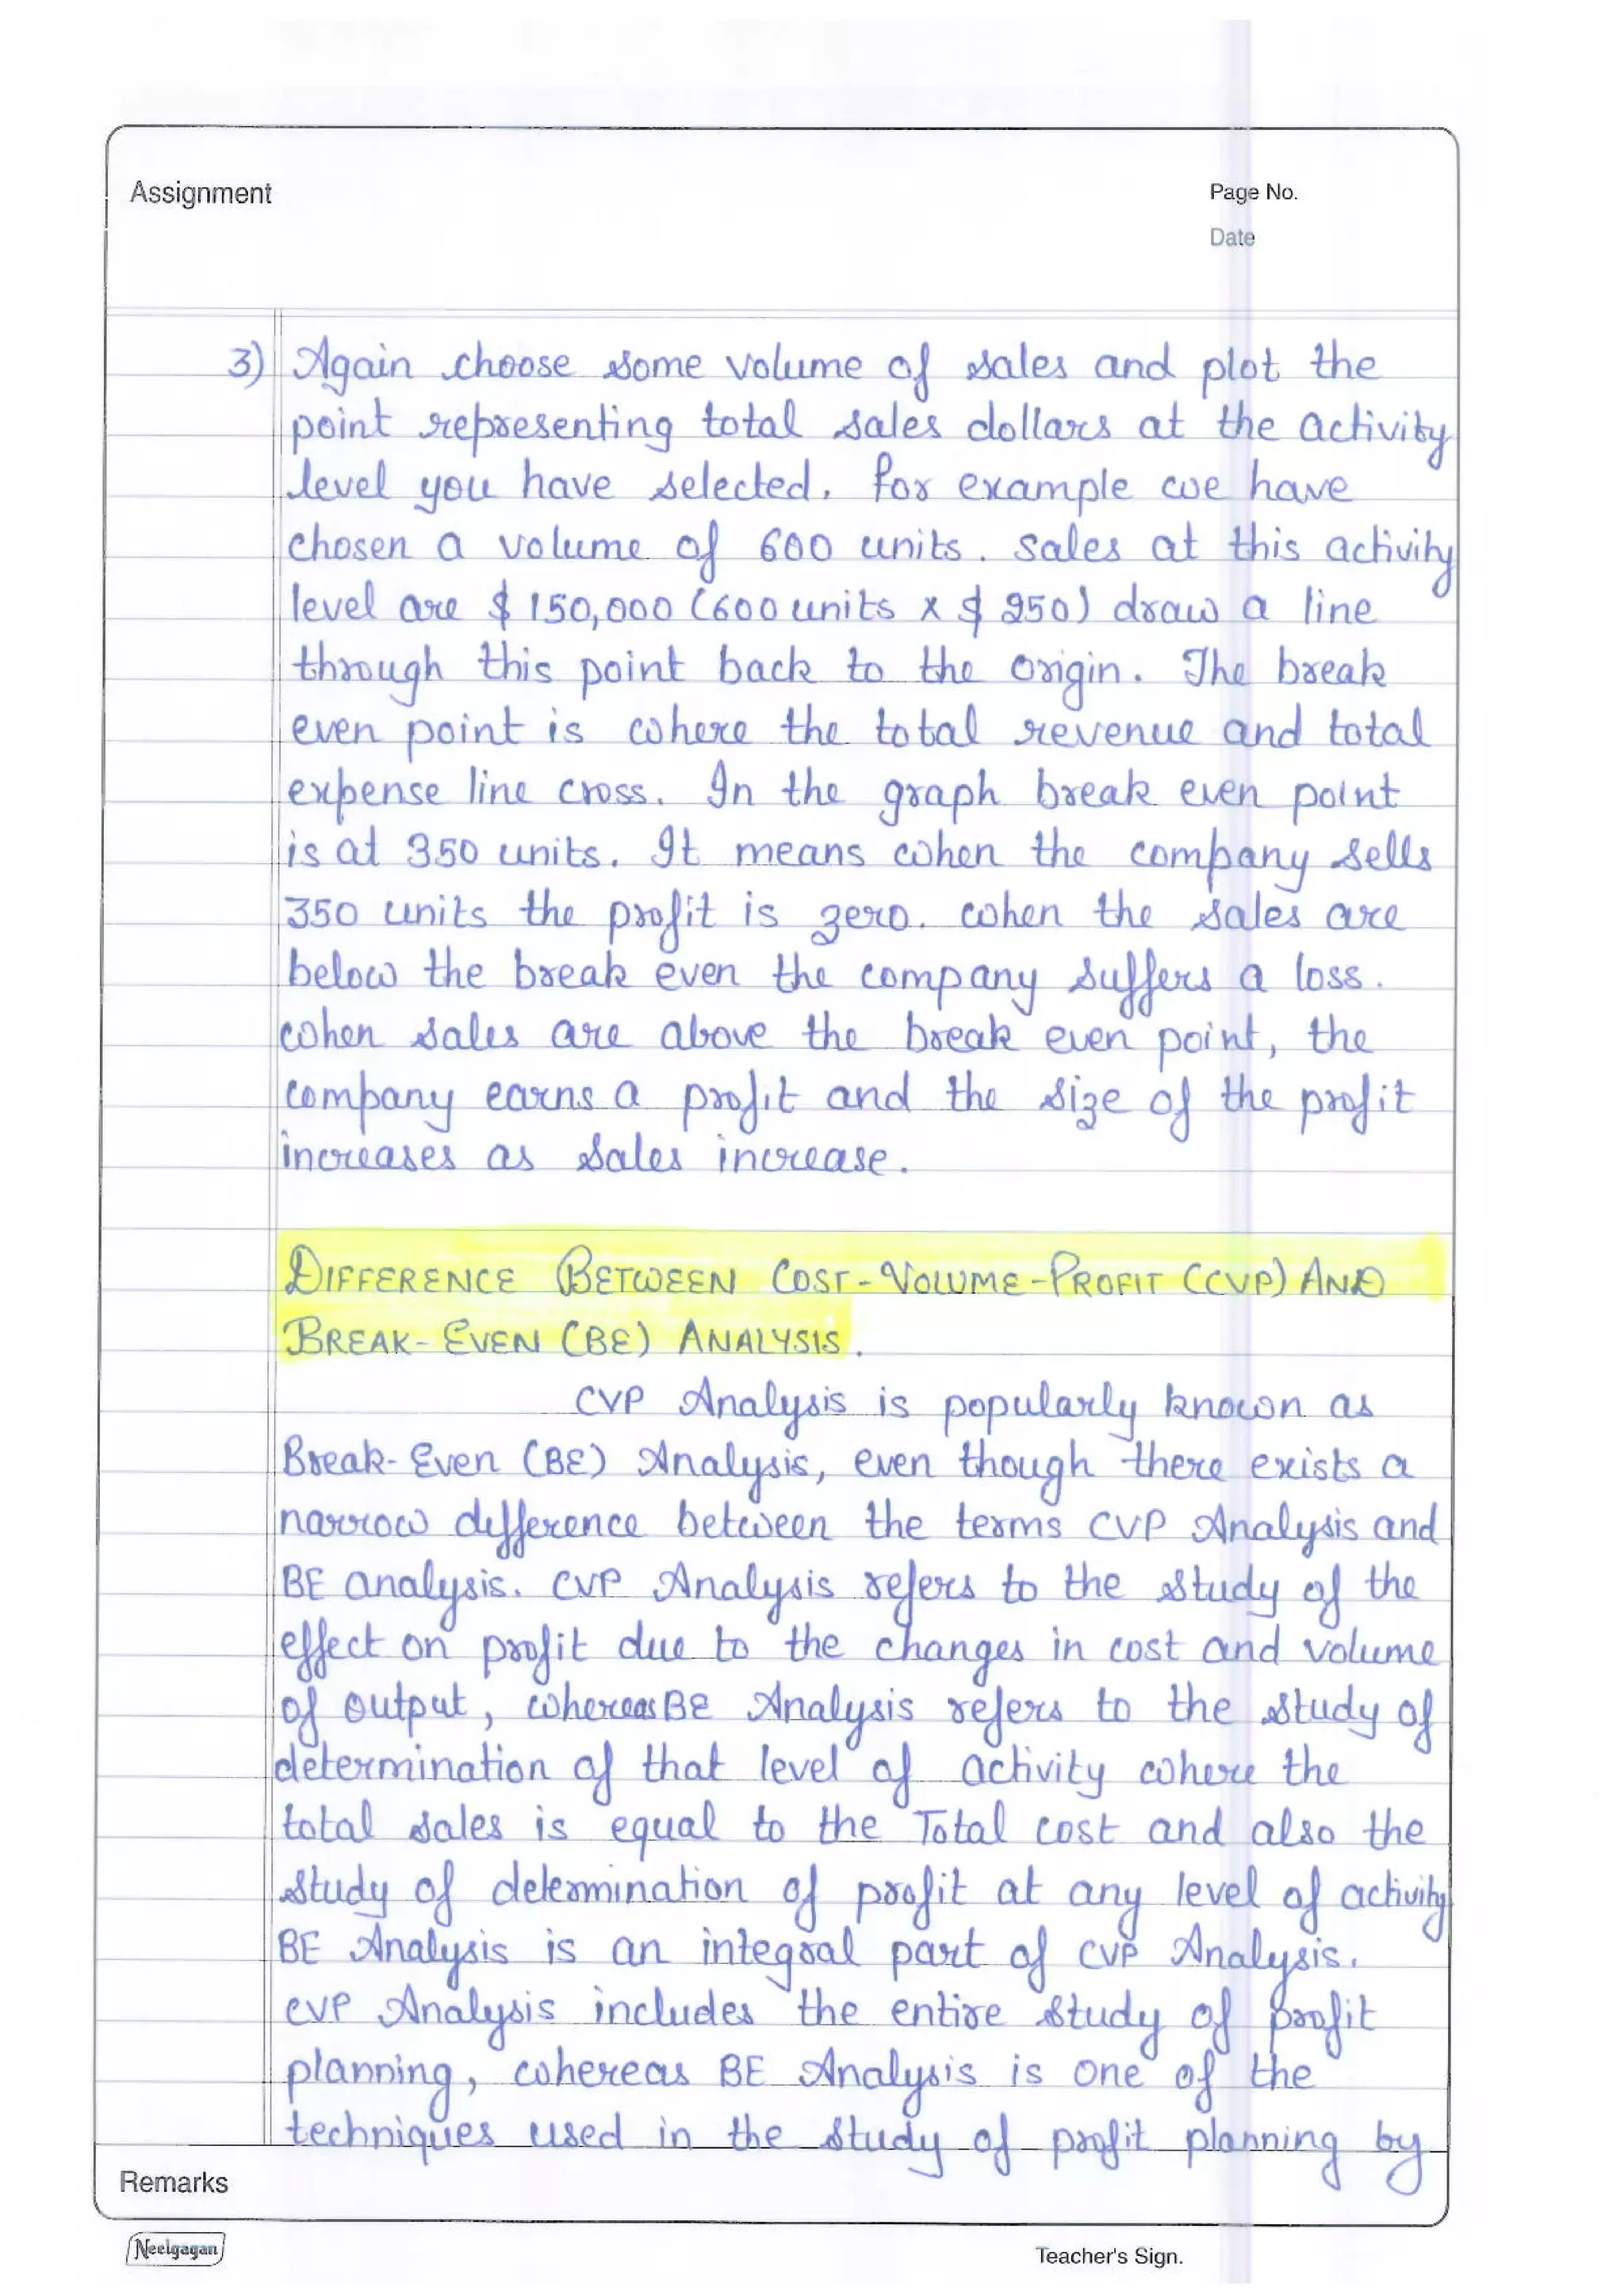 Assignment
Page No.
Date
3) Again choose some volume of sales and plot the
point representing total sales dollars at the activity
level you have selected. For example we have
chosen a volume of 600 units. Sales at this activity
level are $ 150,000 (600 units x $ 250) draw a line
through this point back to the origin. The break
even point is where the total revenue and total
expense line cross. In the graph break even point
is at 350 units. It means when the company sells
350 units the profit is zero. when the sales are
below the break even the company suffers a loss.
when sales are above the break even point, the
company earns a profit and the size of the profit
increases as sales increase.
DIFFERENCE BETWEEN COST-VOLUME-PROFIT (CVP) AND
BREAK-EVEN (BE) ANALYSIS.
CVP Analysis is popularly known as
Break-Even (BE) Analysis, even though there exists a
narrow difference between the terms CVP Analysis and
BE analysis. CVP Analysis refers to the study of the
effect on profit due to the changes in cost and volume
of output, whereas BE Analysis refers to the study of
determination of that level of activity where the
total sales is equal to the Total cost and also the
study of determination of profit at any level of activity
BE Analysis is an integral part of CVP Analysis.
CVP Analysis includes the entire study of profit
planning, whereas BE Analysis is one of the
techniques used in the study of profit planning by
Remarks
Neelgagan
Teacher's Sign.